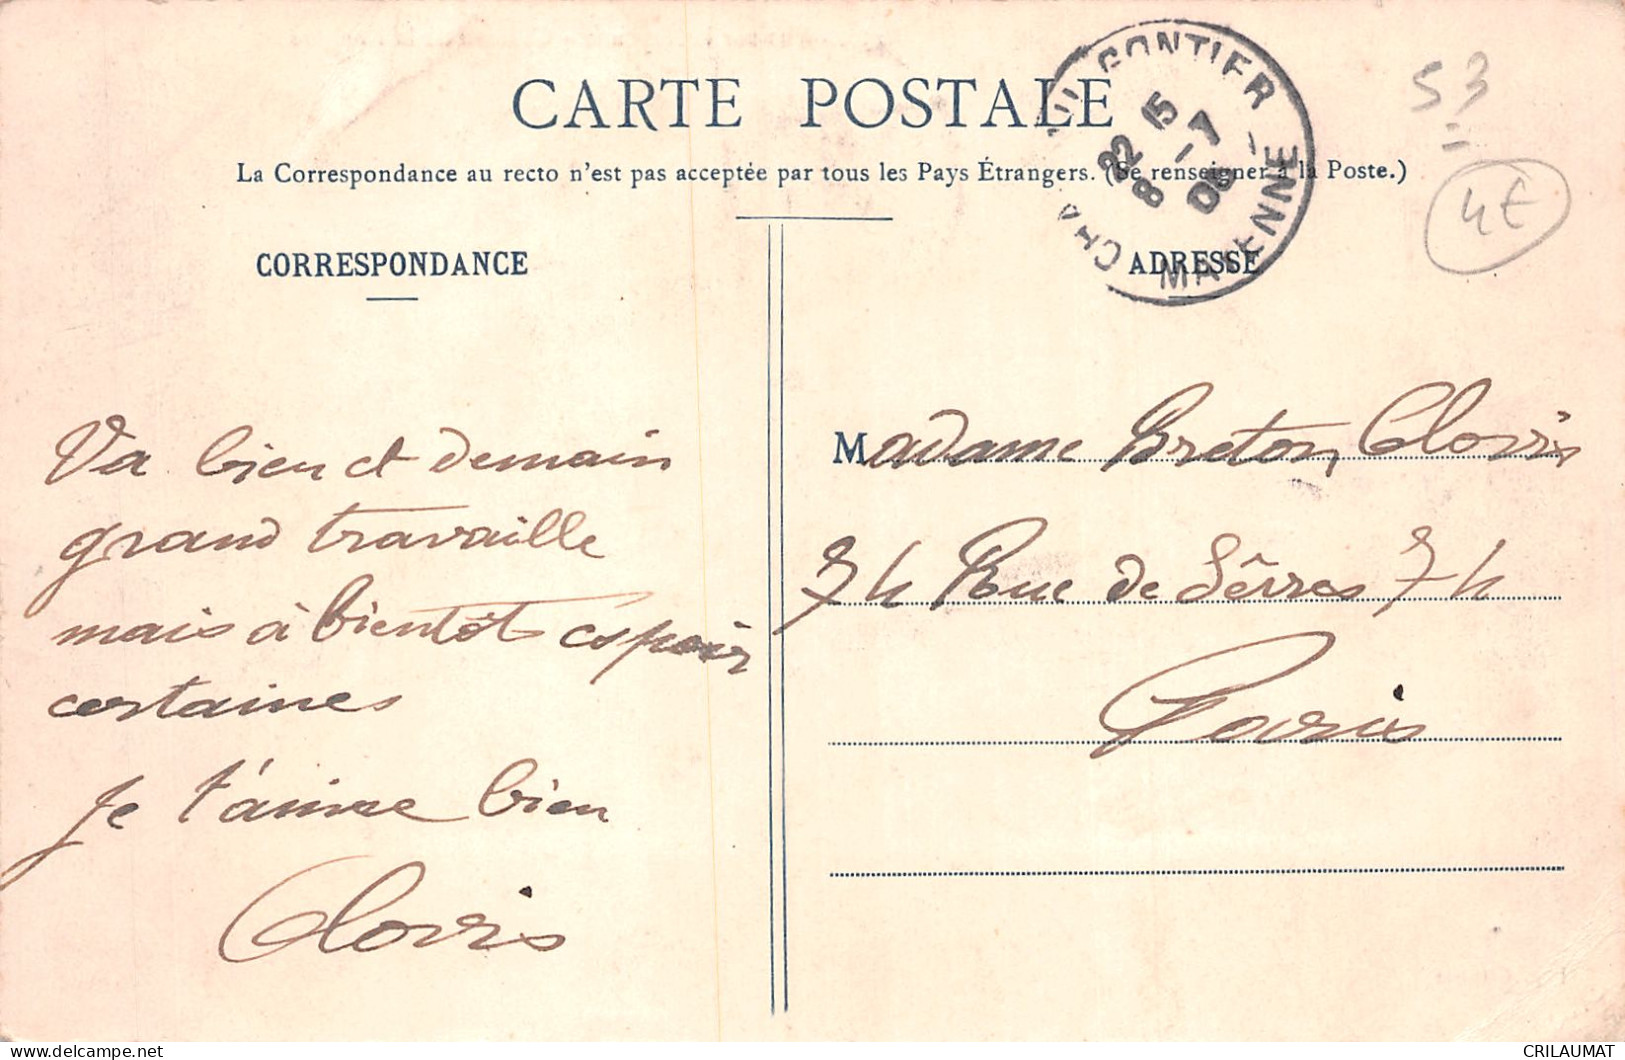 CARTE POSTALE
La Correspondance au recto n'est pas acceptée par tous les Pays Étrangers. (Se renseigner à la Poste.)
CORRESPONDANCE
Va bien et demain
grand travaille
mais à bientôt espoir
certaines
Je t'aime bien
Clovis
ADRESSE
Madame Breton Clovis
74 Rue de Sêvres 74
Paris
53
4€
GONTIER
22 15
8 -7
08
MAYENNE
CRILAUMAT